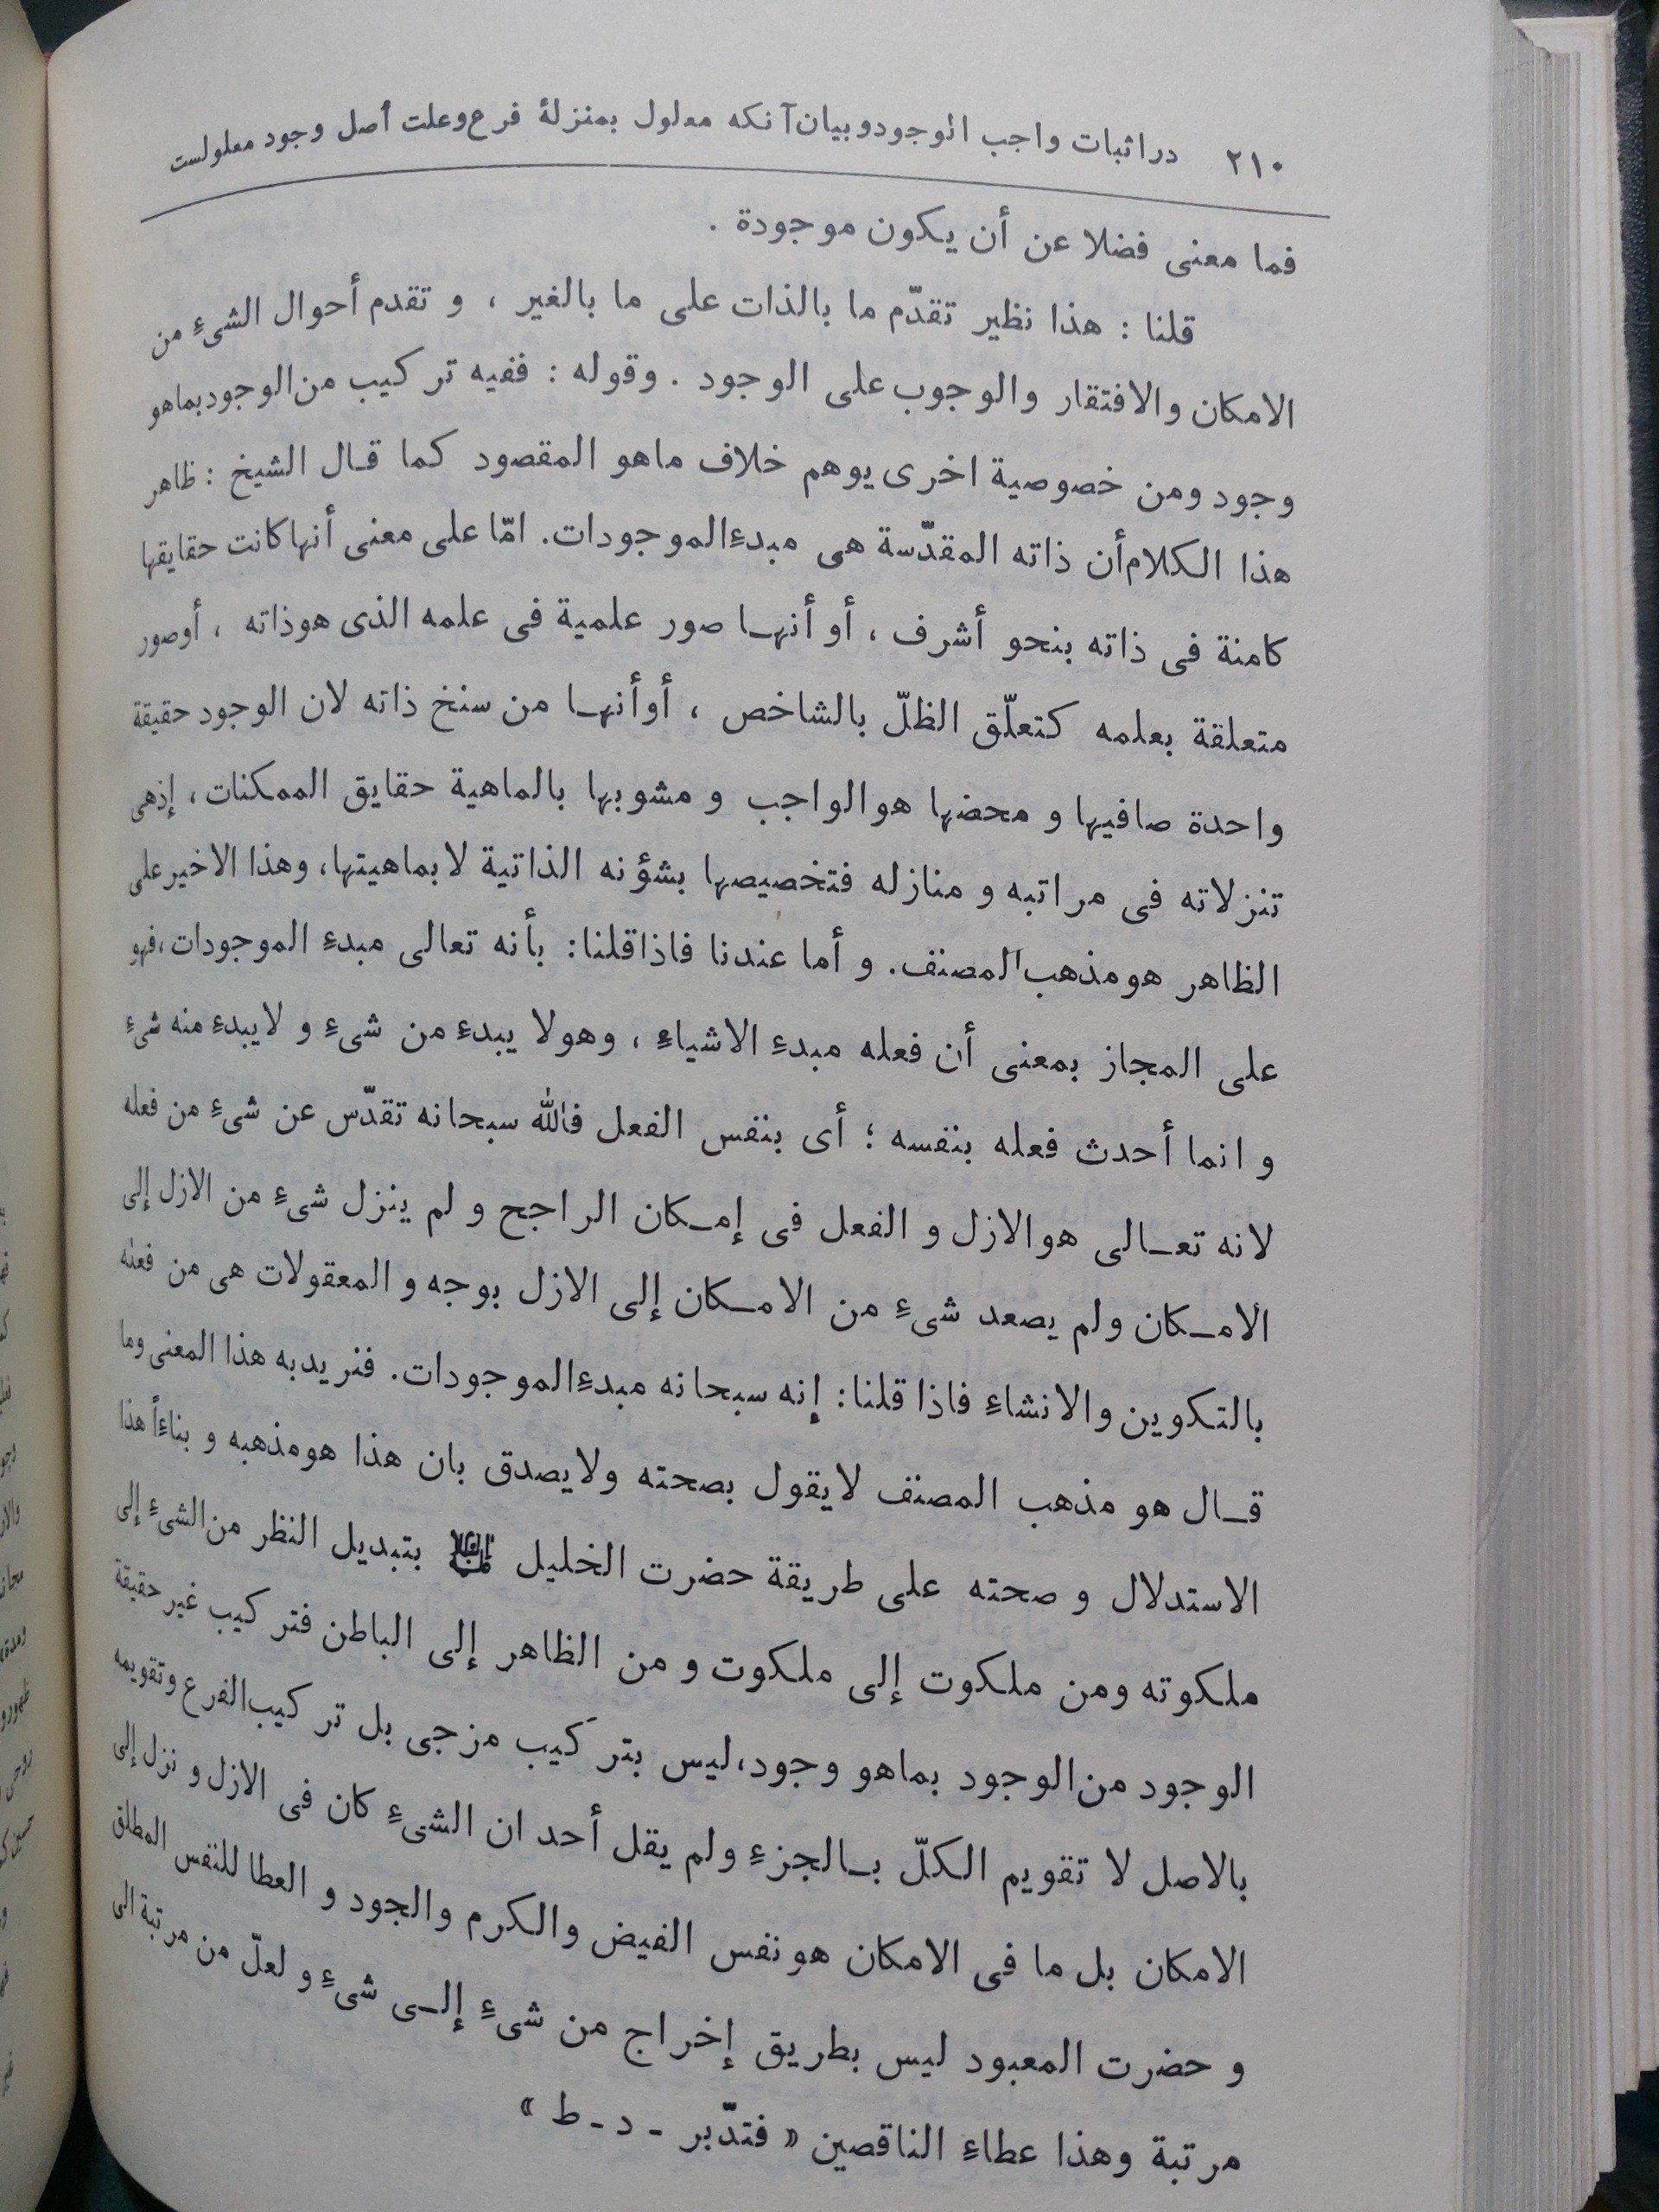 ٢١٠ دراثبات واجب الوجودوبیان‌آنکه معلول بمنزلهٔ فرع‌وعلت أصل وجود معلولست
فما معنى فضلا عن أن يكون موجودة .
قلنا : هذا نظير تقدّم ما بالذات على ما بالغير ، و تقدم أحوال الشىءِ من
الامكان والافتقار والوجوب على الوجود . وقوله : ففيه تركيب من‌الوجودبماهو
وجود ومن خصوصية اخرى يوهم خلاف ماهو المقصود كما قـال الشيخ : ظاهر
هذا الكلام‌أن ذاته المقدّسة هى مبدءِالموجودات. امّا على معنى أنهاكانت حقايقها
كامنة فى ذاته بنحو أشرف ، أو أنهـا صور علمية فى علمه الذى هوذاته ، أوصور
متعلقة بعلمه كتعلّق الظلّ بالشاخص ، أوأنهـا من سنخ ذاته لان الوجود حقيقة
واحدة صافيها و محضها هوالواجب و مشوبها بالماهية حقايق الممكنات ، إذهى
تنزلاته فى مراتبه و منازله فتخصيصها بشؤنه الذاتية لابماهيتها، وهذا الاخيرعلى
الظاهر هومذهب‌المصنف. و أما عندنا فاذاقلنا: بأنه تعالى مبدءِ الموجودات ،فهو
على المجاز بمعنى أن فعله مبدءِ الاشياءِ ، وهولا يبدءِ من شىءِ و لايبدءِ منه شىءِ
و انما أحدث فعله بنفسه ؛ أى بنفس الفعل فالله سبحانه تقدّس عن شىءِ من فعله
لانه تعـالى هوالازل و الفعل فى إمـكان الراجح و لم ينزل شىءِ من الازل إلى
الامـكان ولم يصعد شىءِ من الامـكان إلى الازل بوجه و المعقولات هى من فعله
بالتكوين والانشاءِ فاذا قلنا: إنه سبحانه مبدءِالموجودات. فنريدبه هذا المعنى وما
قـال هو مذهب المصنف لايقول بصحته ولايصدق بان هذا هومذهبه و بناءاً هذا
الاستدلال و صحته على طريقة حضرت الخليل عليه‌السلام بتبديل النظر من‌الشىءِ إلى
ملكوته ومن ملكوت إلى ملكوت و من الظاهر إلى الباطن فتركيب غير حقيقة
الوجود من‌الوجود بماهو وجود،ليس بتركيب مزجى بل تركيب‌الفرع وتقويمه
بالاصل لا تقويم الكلّ بـالجزءِ ولم يقل أحد ان الشىءِ كان فى الازل و نزل إلى
الامكان بل ما فى الامكان هونفس الفيض والكرم والجود و العطا للنفس المطلق
و حضرت المعبود ليس بطريق إخراج من شىءِ إلـى شىءِ و لعلّ من مرتبة الى
مرتبة وهذا عطاءِ الناقصين « فتدّبر - د - ط »